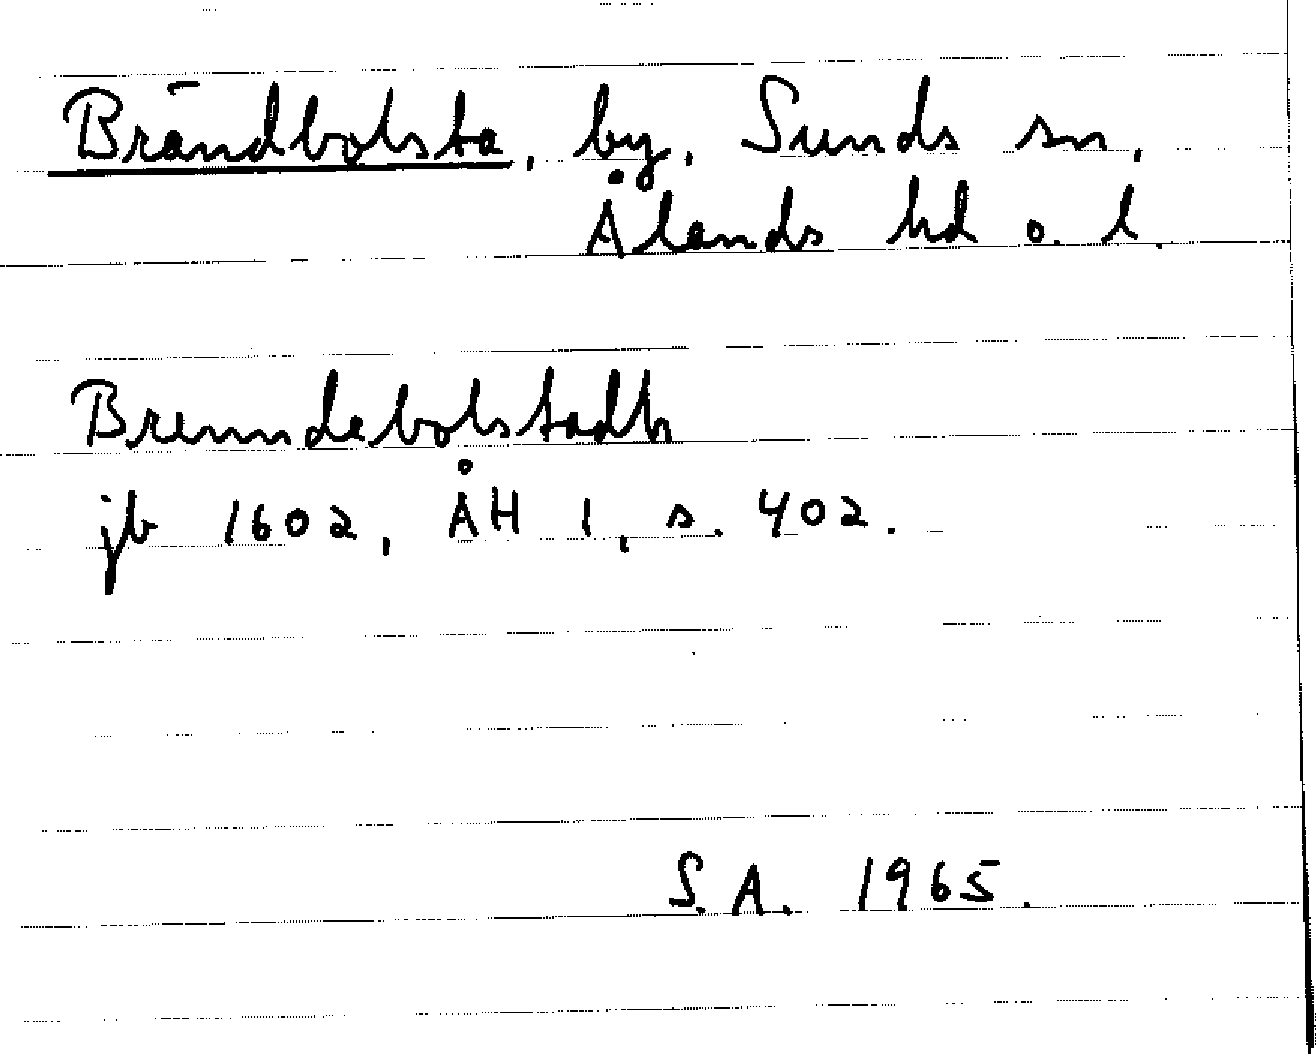 Brändbolsta, by, Sunds sn,
Ålands hd o. l.
Brenndebolstadh
jb 1602, ÅH 1, s. 402.
S.A. 1965.